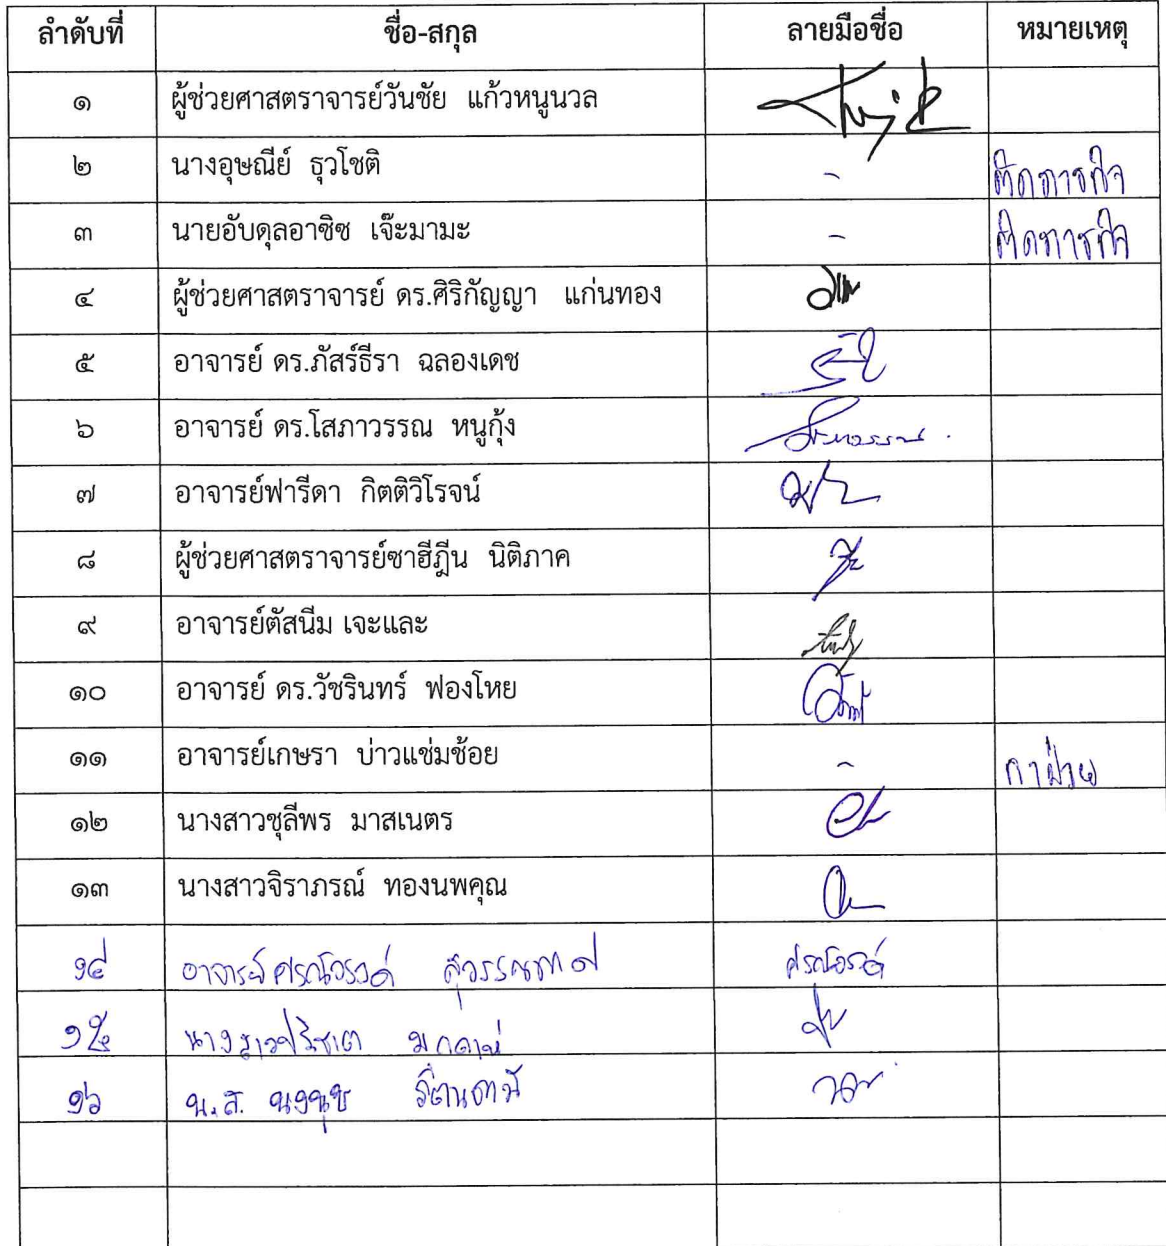 ลำดับที่ ชื่อ-สกุล ลายมือชื่อ หมายเหตุ
๑ ผู้ช่วยศาสตราจารย์วันชัย แก้วหนูนวล
๒ นางอุษณีย์ ธุวโชติ - ติดภารกิจ
๓ นายอับดุลอาซิซ เจ๊ะมามะ - ติดภารกิจ
๔ ผู้ช่วยศาสตราจารย์ ดร.ศิริกัญญา แก่นทอง
๕ อาจารย์ ดร.ภัสร์ธีรา ฉลองเดช
๖ อาจารย์ ดร.โสภาวรรณ หนูกุ้ง
๗ อาจารย์ฟารีดา กิตติวิโรจน์
๘ ผู้ช่วยศาสตราจารย์ซาฮีฎีน นิติภาค
๙ อาจารย์ตัสนีม เจะและ
๑๐ อาจารย์ ดร.วัชรินทร์ ฟองโหย
๑๑ อาจารย์เกษรา บ่าวแช่มช้อย - ลาป่วย
๑๒ นางสาวชุลีพร มาสเนตร
๑๓ นางสาวจิราภรณ์ ทองนพคุณ
๑๔ อาจารย์
๑๕ นางสาวปาริชาต
๑๖ น.ส. นงนุช